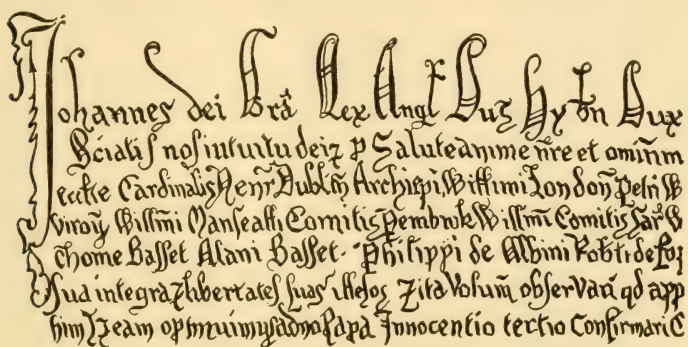 Johannes dei Grā Rex Angl Dns Hybn Dux
Sciatis nos intuitu dei ⁊ p Salute anime nr̄e et omnium
eccl̄ie Cardinalis Henr̄ Dublin̄ Archiep̄i Willimi London̄ Petri W
Willm̄i Marscalli Comitis Pembrok Willm̄ Comitis Sar̄ W
Thome Basset Alani Basset. Philippi de Albini Rob̄ti de
Sua integra ⁊ libertates suas illesas ⁊ ita Volum̄ observari qd app
optinuimus a dno Papa Innocentio tertio Confirmari